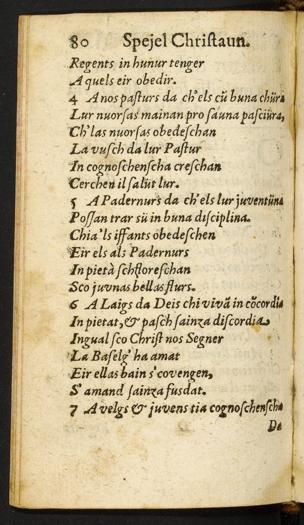 80 Spejel Christaun.
Regents in hunur tenger
A quels eir obedir.
4 A nos pasturs da ch'els cū buna chüra
Lur nuorsas mainan pro sauna pasciüra,
Ch'las nuorsas obedeschan
La vusch da lur Pastur
In cognoschenscha creschan
Cerchen il salüt lur.
5 A Padernurs da ch'els lur juventüna
Possan trar sü in buna disciplina.
Chia'ls iffants obedeschen
Eir els als Padernurs
In pietà schfloreschan
Sco juvnas bellas flurs.
6 A Laigs da Deis chi vivā in cōcordia
In pietat, & pasch sainza discordia.
Ingual sco Christ nos Segner
La Baselg' ha amat
Eir ellas bain s'covengen,
S'amand sainza fusdat.
7 A velgs & juvens tia cognoschenscha
Da